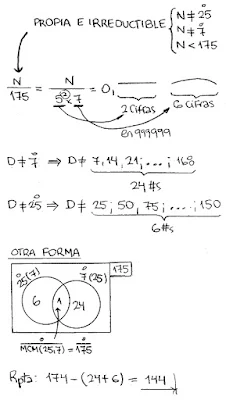 PROPIA E IRREDUCTIBLE { N ≠ 25̊
N ≠ 7̊
N < 175
N/175 = N/(5²×7) = 0,
2 CIFRAS
6 CIFRAS
en 999999
D ≠ 7̊ ⇒ D ≠ 7, 14, 21; ...; 168
24 #s
D ≠ 25̊ ⇒ D ≠ 25; 50, 75; ...; 150
6 #s
OTRA FORMA
25̊(7) 7̊(25) 175
6 1 24
MCM(25;7) = 175̊
Rpta: 174 - (24+6) = 144